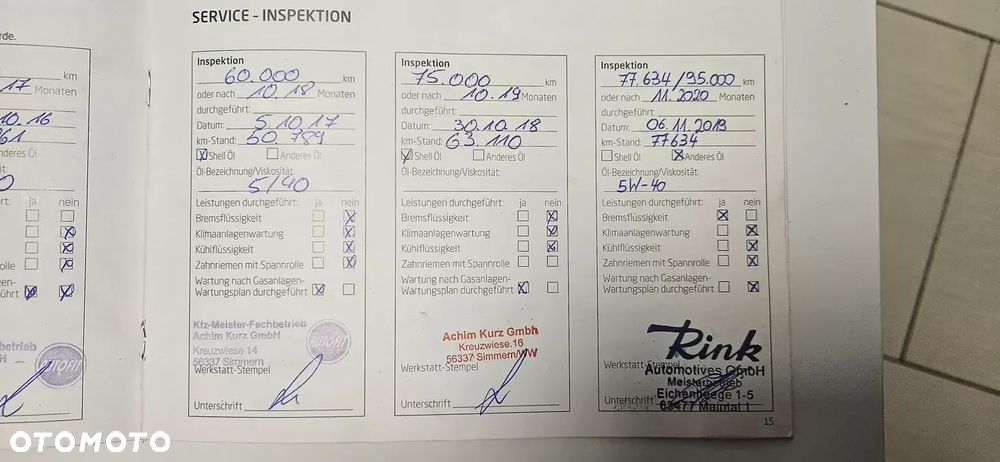 SERVICE - INSPEKTION
rde.
km
17 Monaten
10.16
261
nderes Öl
ät:
0
rt: ja nein
rolle
gen-
führt
betrieb
H
AUTOFIT
Inspektion
60.000 km
oder nach 10.18 Monaten
durchgeführt:
Datum: 5.10.17
km-Stand: 50.789
Shell Öl Anderes Öl
Öl-Bezeichnung/Viskosität:
5/40
Leistungen durchgeführt: ja nein
Bremsflüssigkeit
Klimaanlagenwartung
Kühlflüssigkeit
Zahnriemen mit Spannrolle
Wartung nach Gasanlagen-
Wartungsplan durchgeführt
Kfz-Meister-Fachbetrieb
Achim Kurz GmbH
Kreuzwiese 14
56337 Simmern
AUTOFIT
Werkstatt-Stempel
Unterschrift
Inspektion
75.000 km
oder nach 10.19 Monaten
durchgeführt:
Datum: 30.10.18
km-Stand: 63.110
Shell Öl Anderes Öl
Öl-Bezeichnung/Viskosität:
Leistungen durchgeführt: ja nein
Bremsflüssigkeit
Klimaanlagenwartung
Kühlflüssigkeit
Zahnriemen mit Spannrolle
Wartung nach Gasanlagen-
Wartungsplan durchgeführt
Achim Kurz Gmbh
Kreuzwiese.16
56337 Simmern/WW
Werkstatt-Stempel
Unterschrift
Inspektion
77.634/95.000 km
oder nach 11.2020 Monaten
durchgeführt:
Datum: 06.11.2019
km-Stand: 77634
Shell Öl Anderes Öl
Öl-Bezeichnung/Viskosität:
5W-40
Leistungen durchgeführt: ja nein
Bremsflüssigkeit
Klimaanlagenwartung
Kühlflüssigkeit
Zahnriemen mit Spannrolle
Wartung nach Gasanlagen-
Wartungsplan durchgeführt
Rink
Werkstatt-Stempel
Automotives GmbH
Meisterbetrieb
Eichenheege 1-5
Unterschrift
63477 Maintal 1
15
OTOMOTO